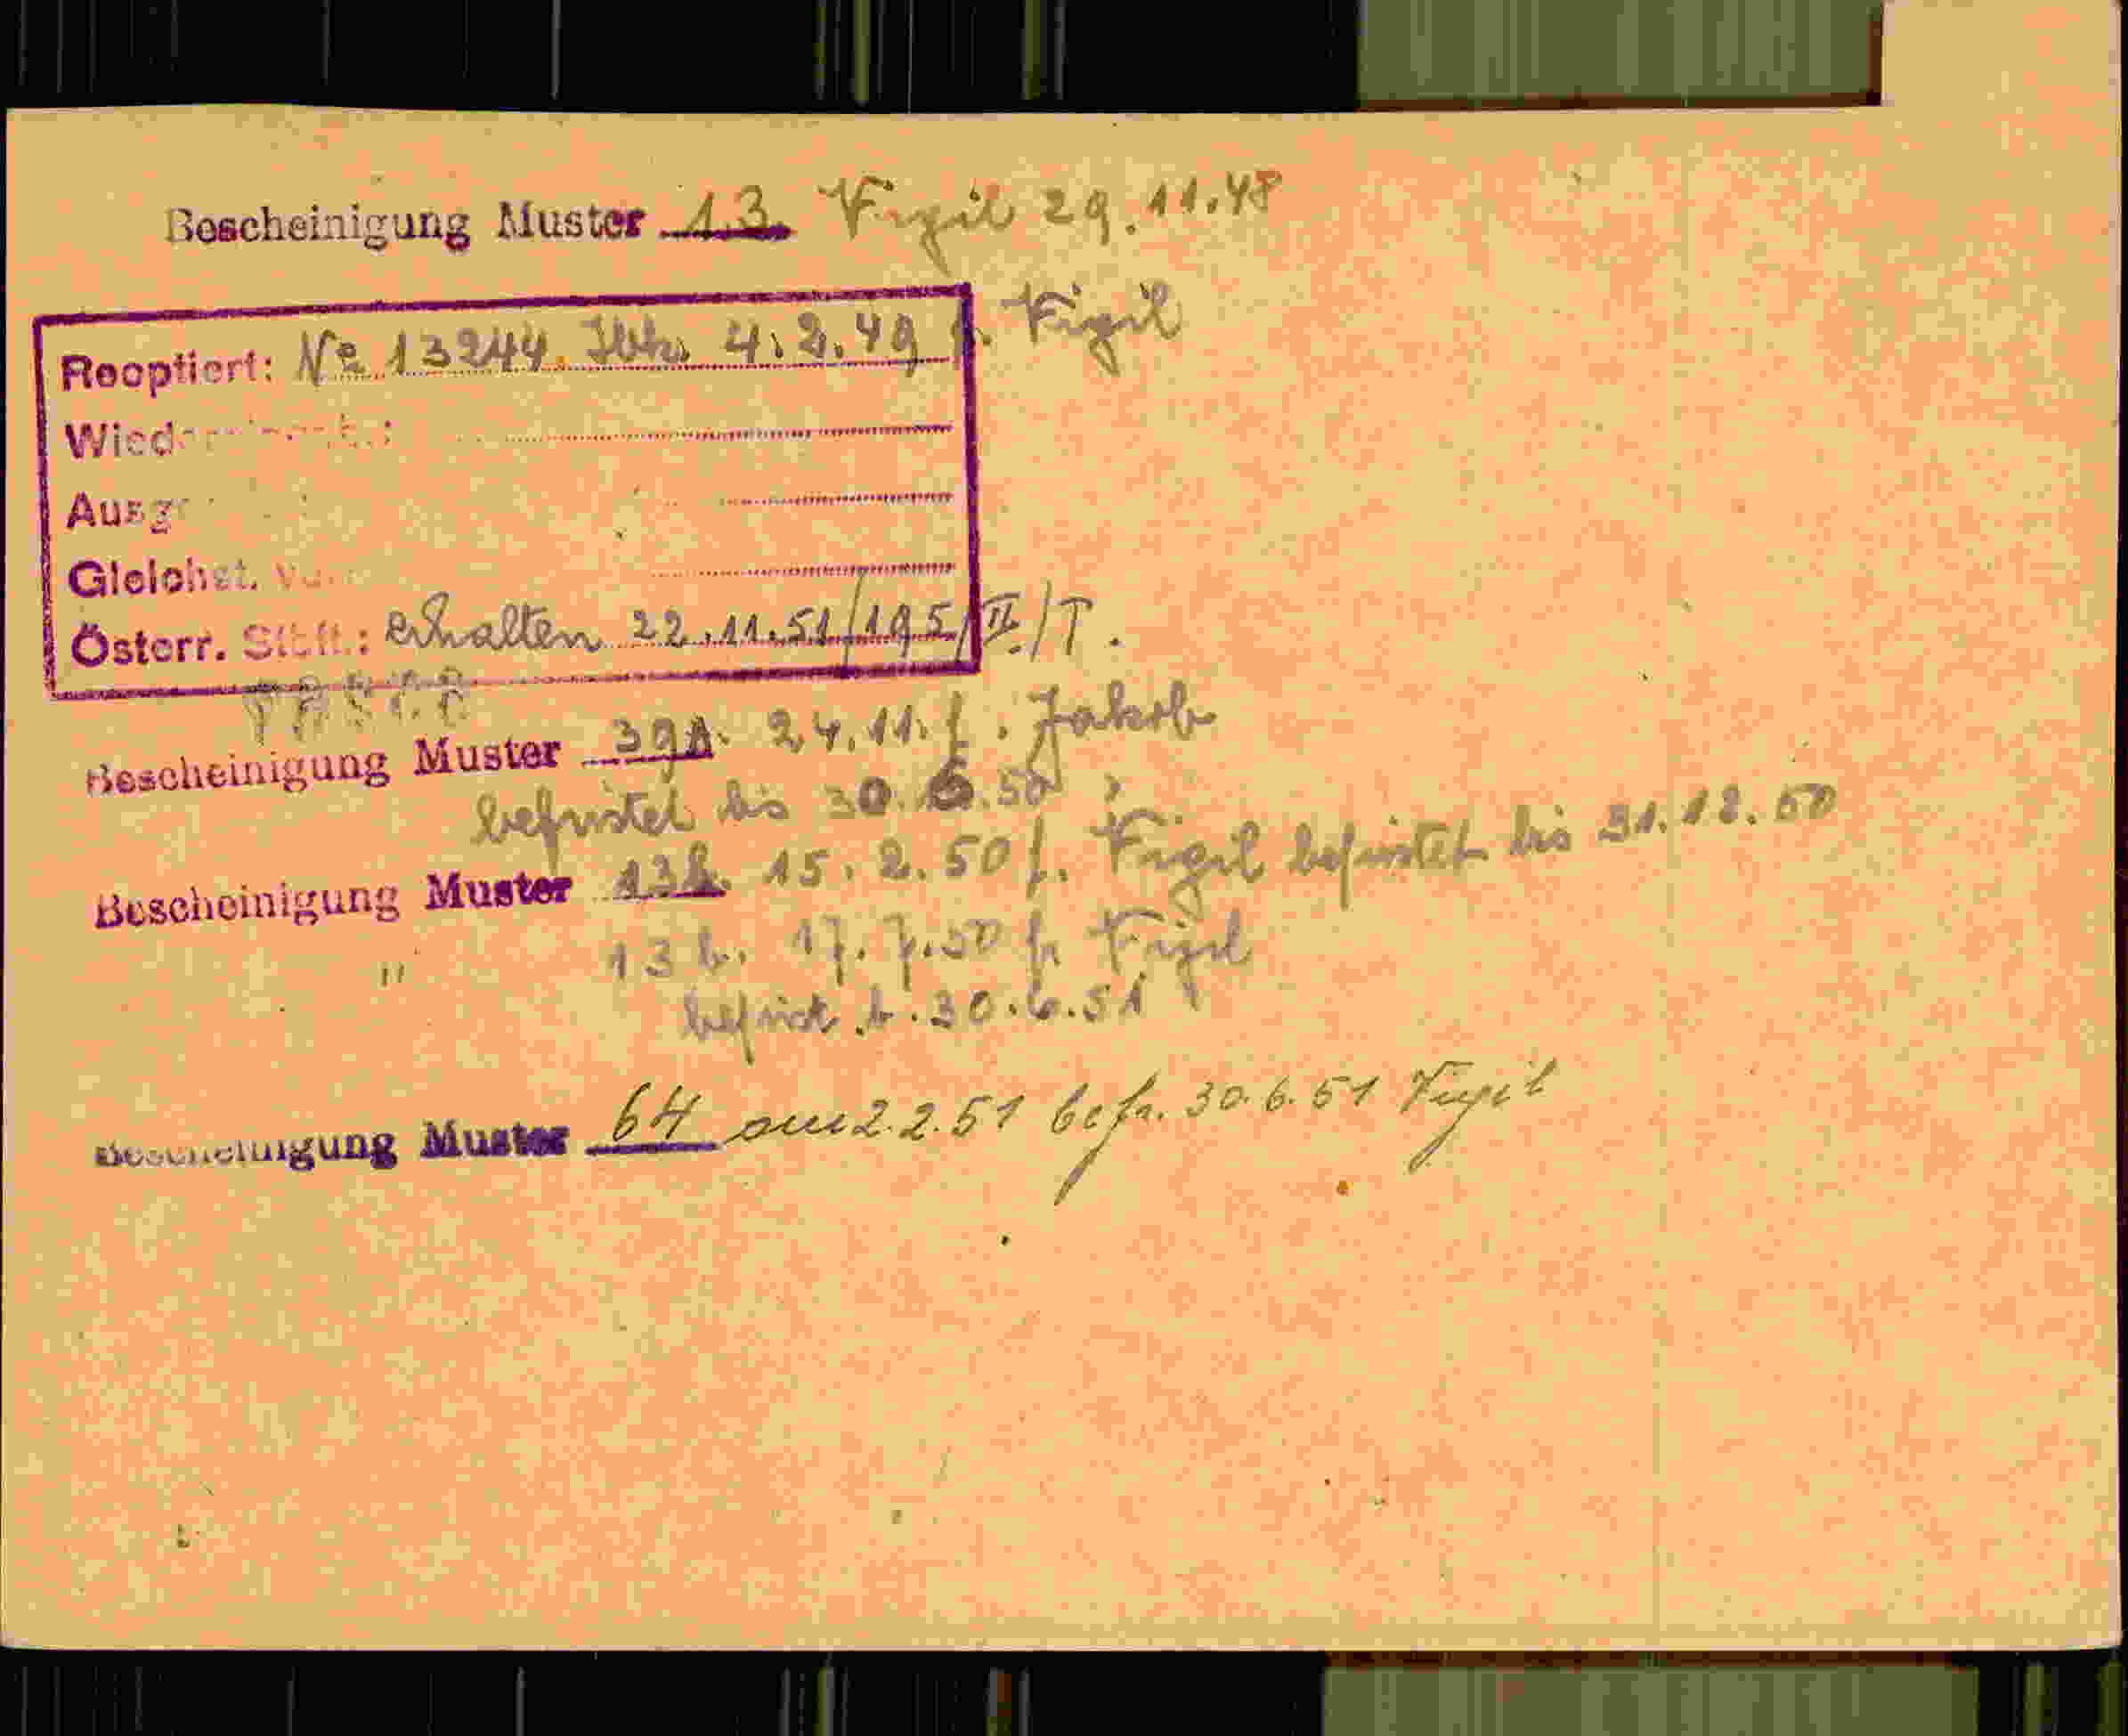 Bescheinigung Muster 13. Vigil 29.11.48
Rooptiert: № 13244. Ibk. 4.2.49 f. Vigil
Ausg
Gleichst. v.
Österr. Stbft.: erhalten 22.11.51/195/II./T.
Bescheinigung Muster 39A. 24.11. f. Jakob
befristet bis 30.6.50
Bescheinigung Muster 13b. 15.2.50 f. Vigil befristet bis 31.12.50
" 13b. 17.7.50 f. Vigil
befrist. b. 30.6.51
Bescheinigung Muster 64 am 2.2.51 befr. 30.6.51 Vigil